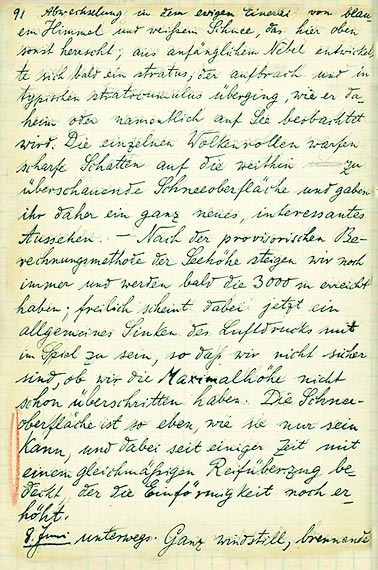 91 Abwechselung in dem ewigen Einerlei von blau-
em Himmel und weißem Schnee, das hier oben
sonst herrscht; aus anfänglichem Nebel entwickel-
te sich bald ein stratus, der aufbrach und in
typischen stratocumulus überging, wie er da-
heim oder namentlich auf See beobachtet
wird. Die einzelnen Wolkenrollen warfen
scharfe Schatten auf die weithin zu
überschauende Schneeoberfläche und gaben
ihr daher ein ganz neues, interessantes
Aussehen. – Nach der provisorischen Be-
rechnungsmethode der Seehöhe steigen wir noch
immer und werden bald die 3000 m erreicht
haben; freilich scheint dabei jetzt ein
allgemeines Sinken des Luftdrucks mit
im Spiel zu sein, so daß wir nicht sicher
sind, ob wir die Maximalhöhe nicht
schon überschritten haben. Die Schnee-
oberfläche ist so eben, wie sie nur sein
kann, und dabei seit einiger Zeit mit
einem gleichmäßigen Reifüberzug be-
deckt, der die Einförmigkeit noch er-
höht.
8. Juni unterwegs. Ganz windstill, brennende